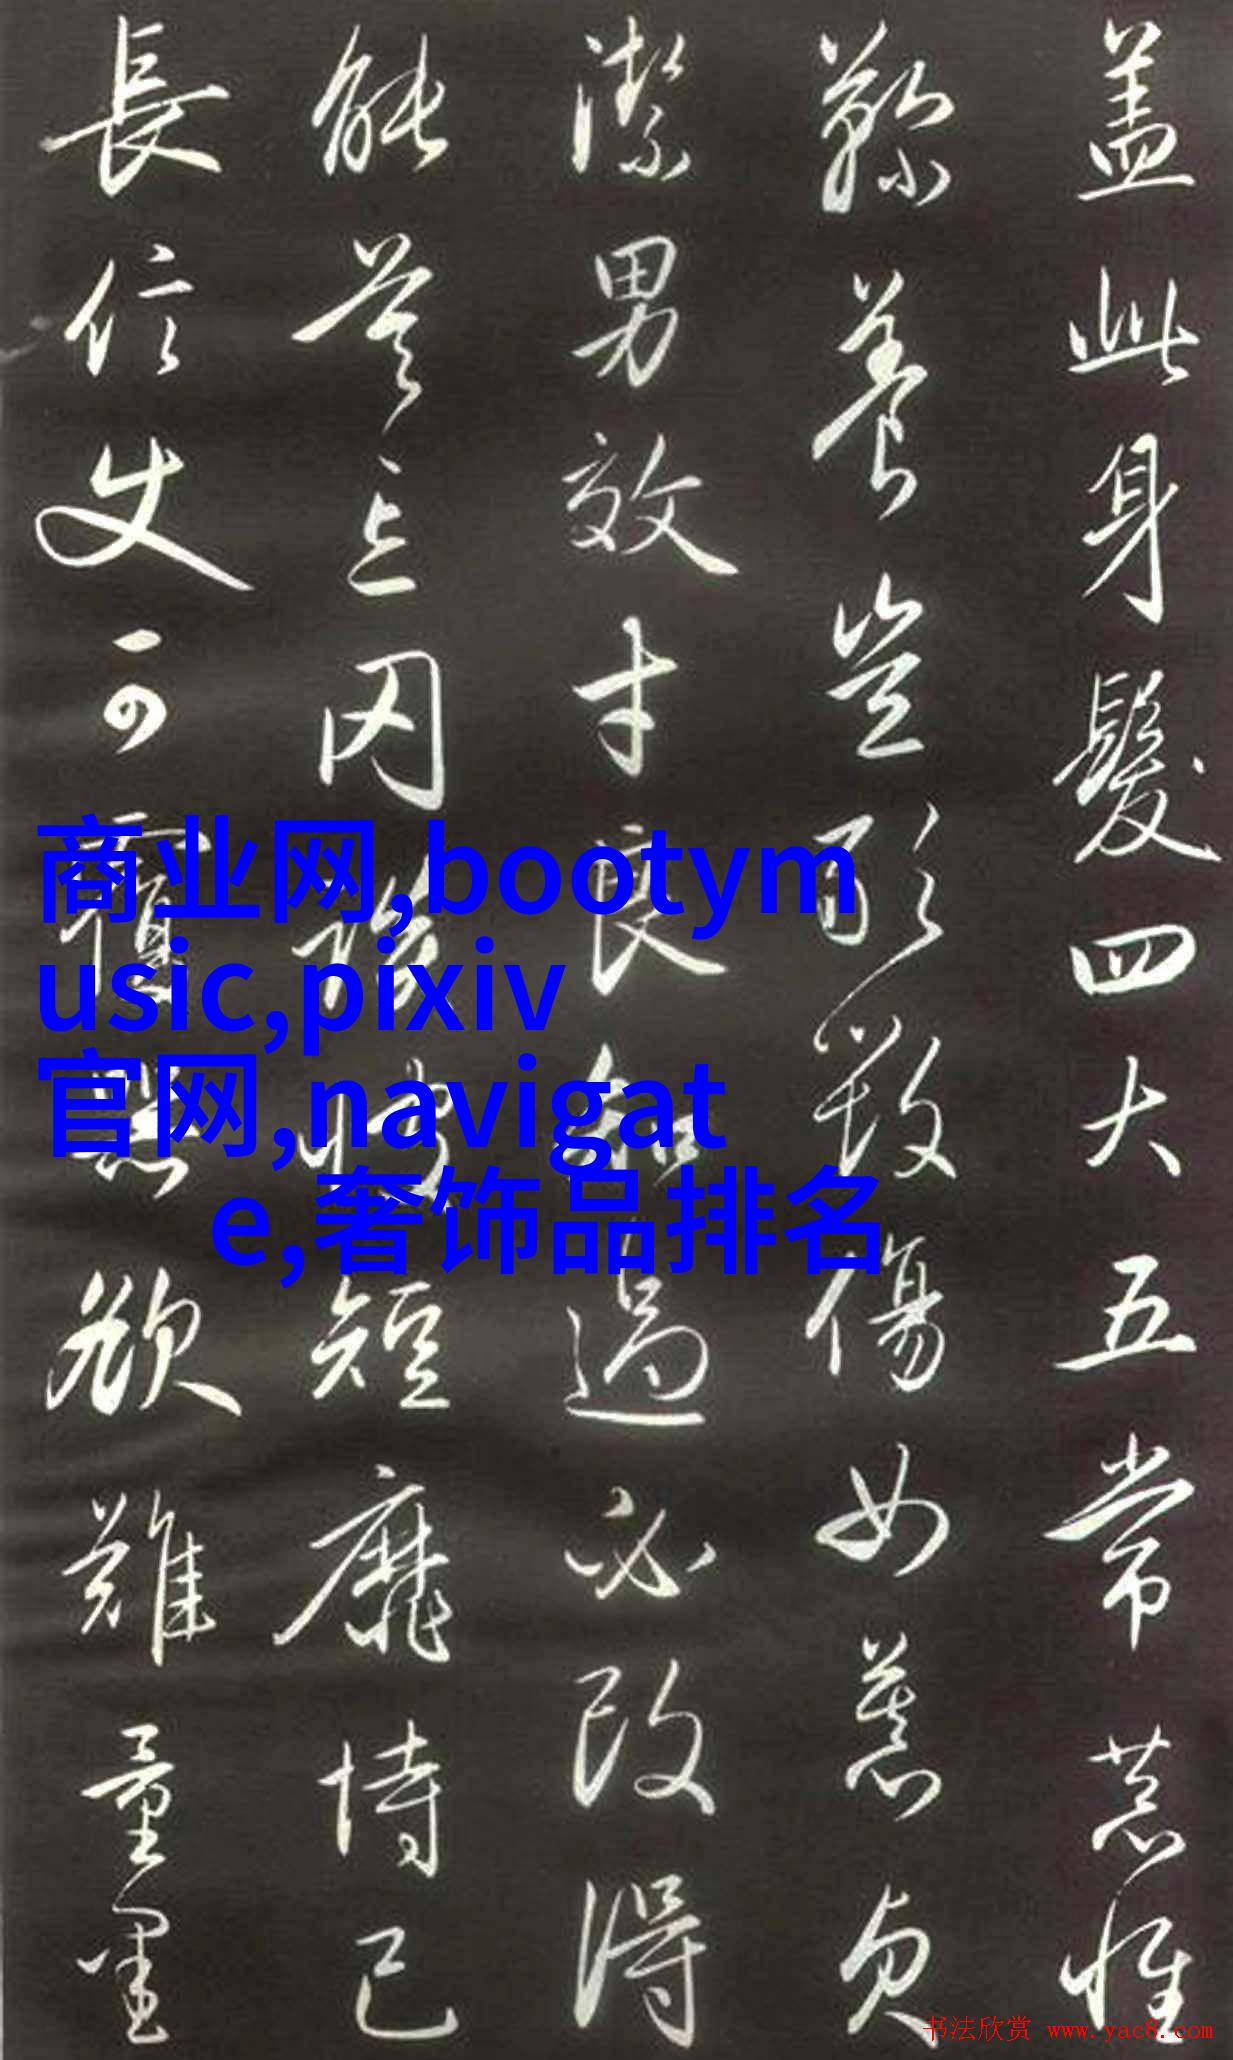 盖此身髮四大五常恭惟
鞠養豈敢毀傷女慕貞
潔男效才良知過必改得
能莫忘罔談彼短靡恃己
長信使可覆器欲難量墨
商业网,bootym
usic,pixiv
官网,navigat
e,奢饰品排名
书法欣赏 www.yac8.com